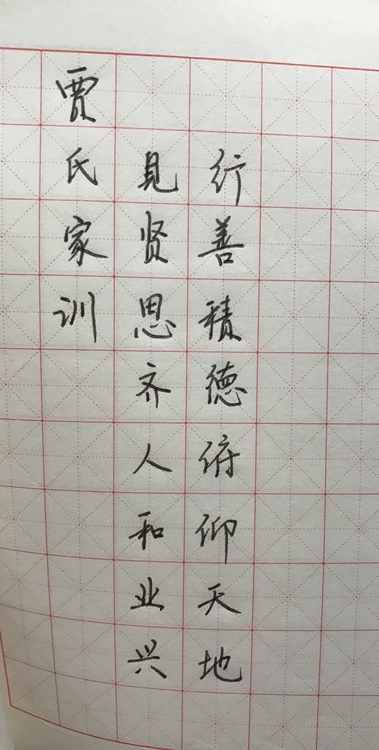 行善積德俯仰天地
見贤思齐人和业兴
賈氏家训